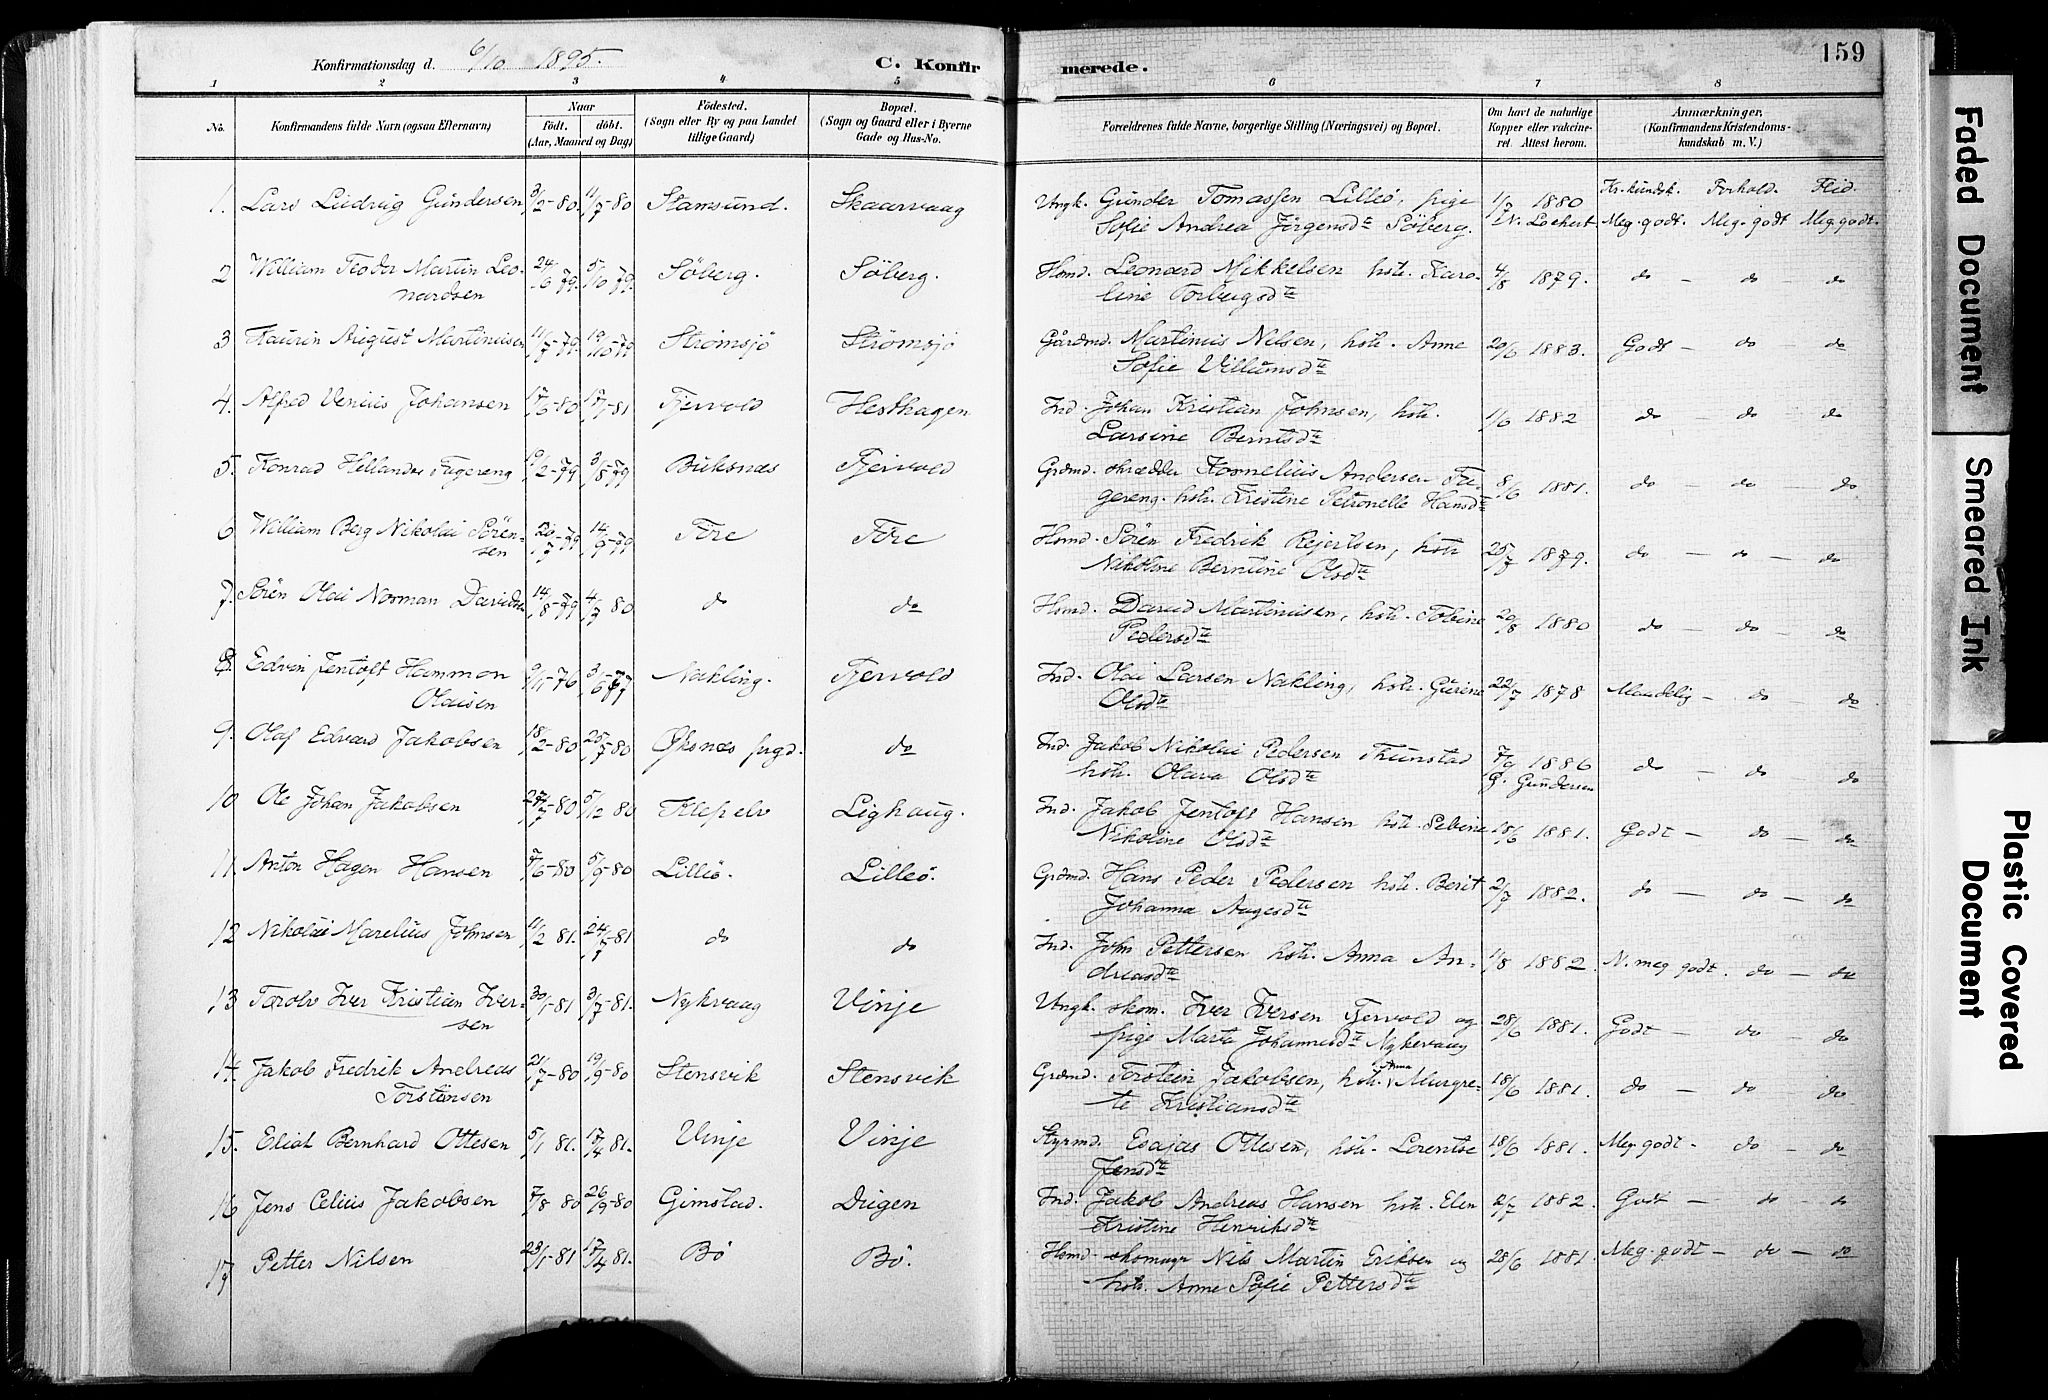 Konfirmationsdag d. 6/10 1895.
C. Konfirmerede.
159
1 2 3 4 5 6 7 8
No.
Konfirmandens fulde Navn (ogsaa Efternavn)
Naar
födt. döbt.
(Aar, Maaned og Dag)
Födested.
(Sogn eller By og paa Landet
tillige Gaard)
Bopæl.
(Sogn og Gaard eller i Byerne
Gade og Hus-No.
Forældrenes fulde Navne, borgerlige Stilling (Næringsvei) og Bopæl.
Om havt de naturlige
Kopper eller vakcine-
ret. Attest herom.
Anmærkninger,
(Konfirmandens Kristendoms-
kundskab m. V.)
Kr. kundsk. Forhold. Flid.
1. Lars Ludvig Gundersen 3/2-80. 11/7-80 Stamsund. Skaarvaag Ungk. Gunder Tomassen Lilleö, pige 1/7 1880
Sofie Andrea Jörgensdtr Söberg. N. Lochert. Meg. godt. Meg. godt Meg. godt.
2 William Teodor Martin Leo- 24/6-79. 5/10-79. Söberg. Söberg. Hsmd. Leonard Mikkelsen hstr. Karo- 4/8 1879. do — do — do
nardsen line Torbergsdtr
3 Laurin August Martinusen 11/7-79. 19/10-79 Strömsjö Strömsjö Gårdmd. Martinus Nilsen, hstr. Anne 20/6 1883. Godt — do — do
Sofie Villumsdtr
4. Alfred Venius Johansen 17/6-80 17/7-81 Fjervold Hesthagen Ind. Johan Kristian Johnsen, hstr. 1/6 1882 do — do — do
Larsine Berntsdtr
5. Konrad Hellandes Fagereng 19/2-79 3/8-79 Buksnæs Fjervold Grdmd. skrædder Kornelius Andersen Fa- 8/6 1881. do — do — do
gereng. hstr. Kristine Petronelle Hansdtr
6 William Berg Nikolai Sören- 20/7-79 14/9-79 Före Före Hsmd. Sören Fredrik Rejertsen, hstr 25/7 1879. do — do — do
sen Nikoline Berntine Olsdtr
7. Sören Olai Norman Davidsen 14/8-79 4/7 80 do do Hsmd. David Martinusen, hstr. Tobine 20/8 1880 do — do — do
Pedersdtr
8. Edvin Jentoft Hammon 9/11-76 3/6-77 Nakling. Fjervold Ind. Olai Larsen Nakling, hstr. Gurine 22/7 1878 Maadelig — do — do
Olaisen Olsdtr
9. Olaf Edvard Jakobsen 18/2-80 25/7-80 Øksnæs prgd. do Ind. Jakob Nikolai Pedersen Thunstad 7/9 1886 do — do — do
hstr. Olava Olsdtr G. Gundersen
10 Ole Johan Jakobsen 27/7-80 5/12 80 Klepelv Lighaug. Ind. Jakob Jentoft Hansen hstr. Sebine 18/6 1881. Godt — do — do
Nikoline Olsdtr
11. Anton Hagen Hansen 7/6-80 5/9-80 Lilleö. Lilleö. Grdmd. Hans Peder Pedersen hstr. Berit 2/7 1882. do — do — do
Johanna Aagesdtr
12 Nikolai Marelius Johnsen 11/2 81. 24/7-81 do do Ind. John Pettersen hstr. Anna An- 1/8 1882. N. meg godt. do — do
dreasdtr
13 Torolv Iver Kristian Iver- 30/1-81 3/7-81. Nykvaag Vinje Ungk. skom. Iver Iversen Fjervold og 28/6 1881. Godt — do — do
sen pige Marta Johannesdtr Nykevaag
14. Jakob Fredrik Andreas 21/7-80 19/9-80 Stensvik Stensvik Grdmd. Torstein Jakobsen, hstr. Anna Margre- 18/6 1881. do — do — do
Torstensen te Kristiansdtr
15. Eliot Bernhard Ottesen 5/1 81. 17/4 81. Vinje Vinje Styrmd. Esajas Ottesen, hstr. Lorentse 18/6 1881. Meg. godt — do — do
Jensdtr
16 Jens Celius Jakobsen 7/8 80 26/9-80 Gimstad. Digen Ind. Jakob Andreas Hansen hstr. Elen 2/7 1882. Godt — do — do
Kristine Henriksdtr
17 Petter Nilsen 23/1-81 17/4 81. Bö Bö. Hsmd. skomagr Nils Martin Eriksen og 28/6 1881. Meg. godt — do — do
hstr. Anne Sofie Pettersdtr
Faded Document
Smeared Ink
Plastic Covered
Document